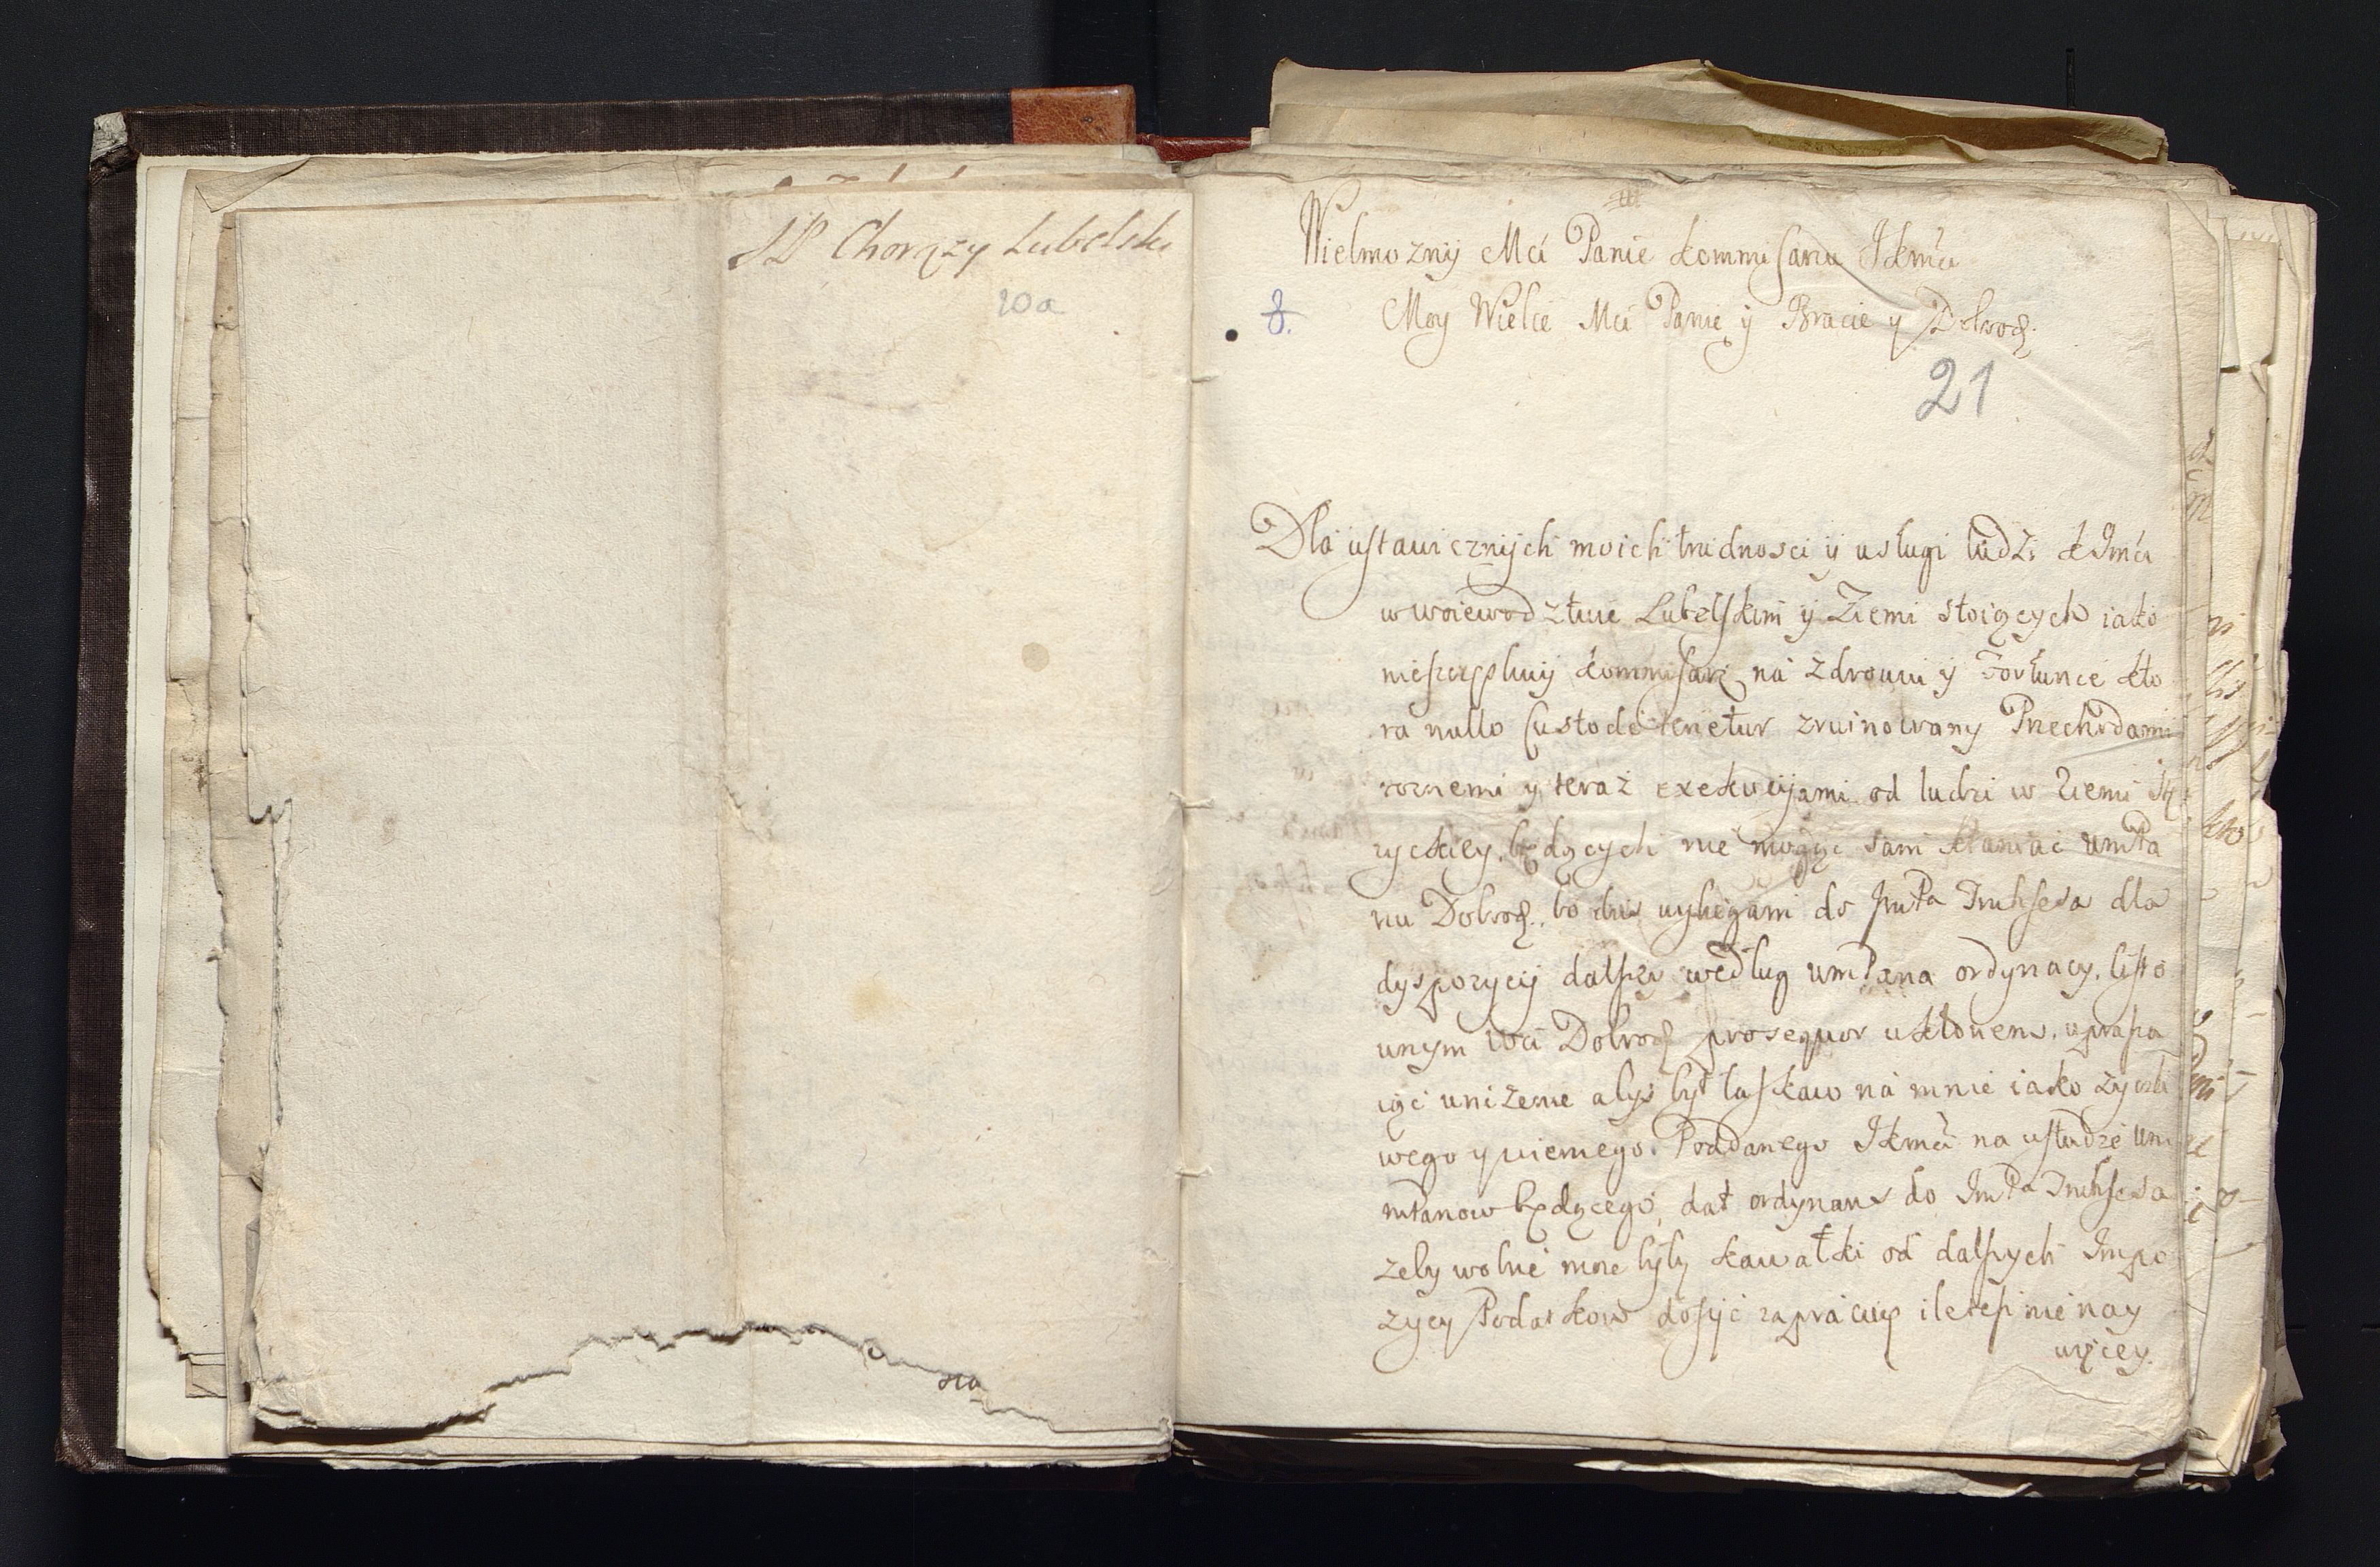 JP Chorązy Lubelski
20a
Wielmozny Mci Panie kommisarzu JKmci
8. Moy Wielce Mci Panie y Bracie y Dobrodz.
21
Dla ustawicznych moich trudnosci y usługi ludzi KJmci
w woiewodztwie Lubelskim y Ziemi stoiących iako
nieszczęsliwy kommisarz na zdrowiu y Fortunie kto
ra nullo custode tenetur zruinowany Przechodami
roznemi y teraz exekucyjami od ludzi w Ziemi
będących nie mogąc sam kłaniac umPa
nu Dobrodz. bo dnis do JmPa Truksesa dla
dyspozycij dalszey według umPana ordynacy. listo
wnym Wci Dobrodz prosequor ukłonem. uprasza
iąc unizenie abys był łaskaw na mnie iako zyczli
wego y wiernego Poddanego JKmci na usłudze um
mPanow będącego, dał ordynans do JmPa Truksesa
zeby wolne moie były kawałki od dalszych Impo
zycy Podatkow dosyc zapracuię ile iesli nie nay
więcey.